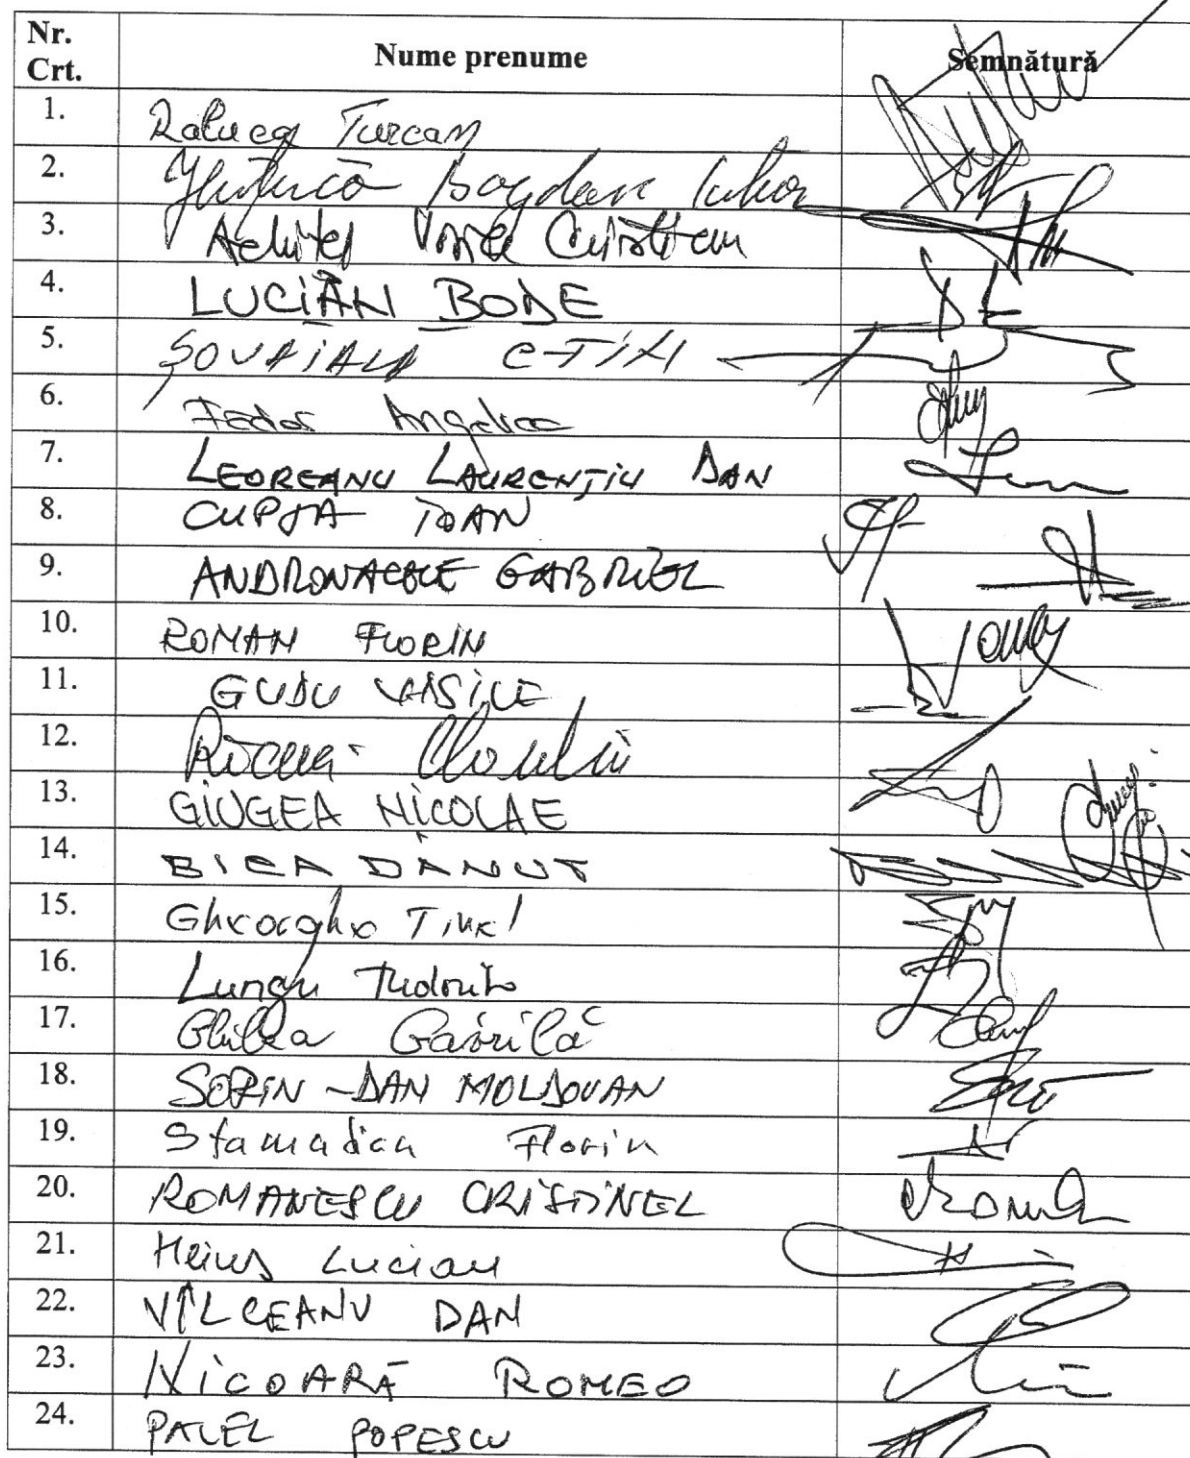 Nr. Crt. Nume prenume Semnătură
1. Raluca Turcan
2. Ghițucă Bogdan Iulian
3. Achiței Vasile Cristian
4. LUCIAN BODE
5. ȘOVĂIALĂ C-TIN
6. Fádor Angelica
7. LEOREANU LAURENȚIU DAN
8. CUPȘA IOAN
9. ANDRONACHE GABRIEL
10. ROMAN FLORIN
11. GUDU VASILE
12.
13. GIUGEA NICOLAE
14. BICA DĂNUȚ
15. Gheorghe Tinel
16. Lungu Tudorița
17. Ghilea Găvrilă
18. SORIN-DAN MOLDOVAN
19. Stamatian Florin
20. ROMANESCU CRISTINEL
21. Heiuș Lucian
22. VÎLCEANU DAN
23. NICOARĂ ROMEO
24. PAVEL POPESCU